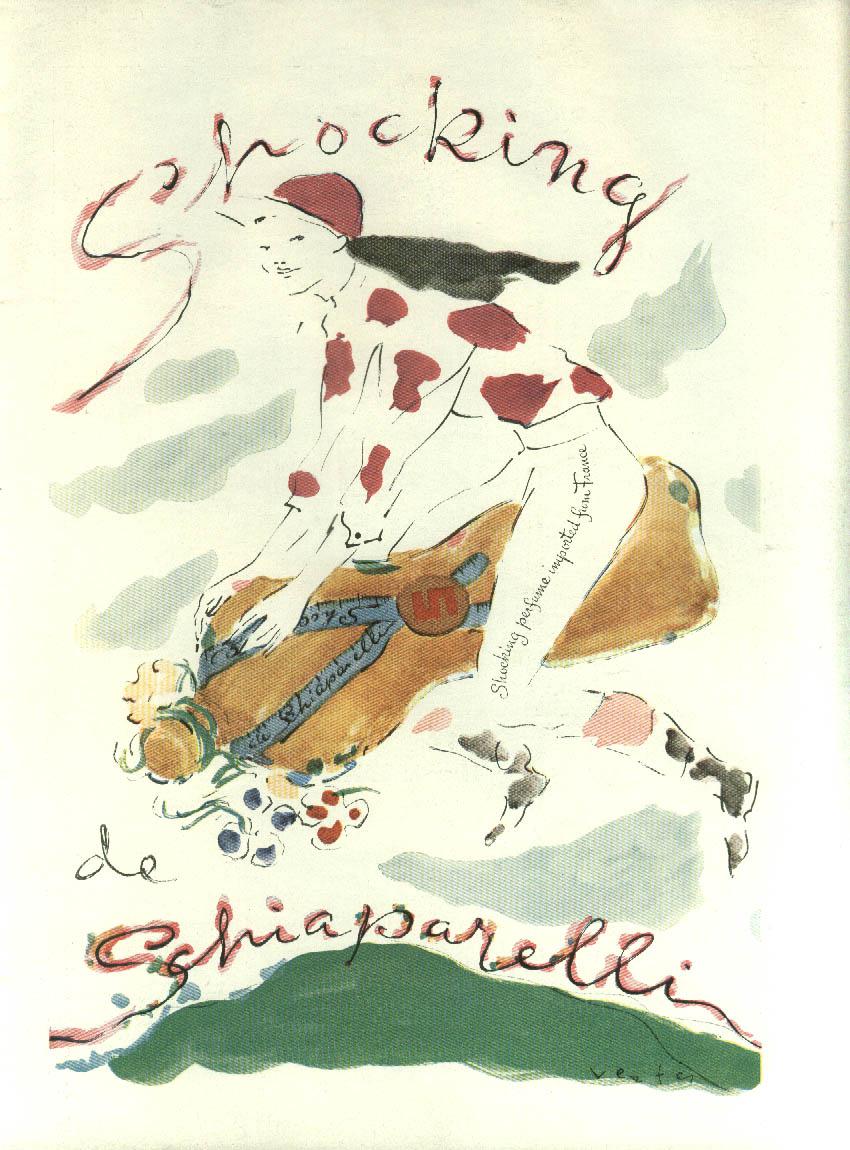 Shocking
Shocking perfume imported from France
S
Shoc
de Schiaparelli
de
Schiaparelli
vertès